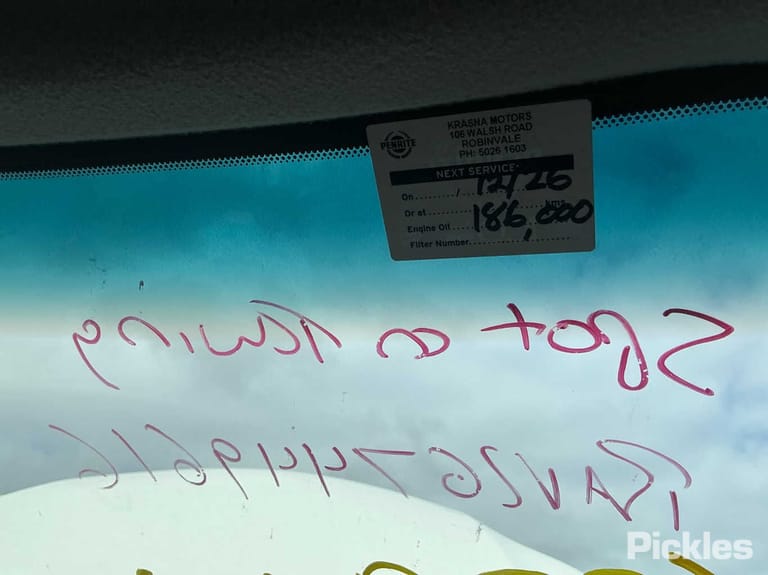 KRASNA MOTORS
106 WALSH ROAD
ROBINVALE
PH: 5026 1603
PENRITE
NEXT SERVICE:
On ........./ 12/26
Or at 186,000 kms
Engine Oil
Filter Number
Spot on Towing
Pickles